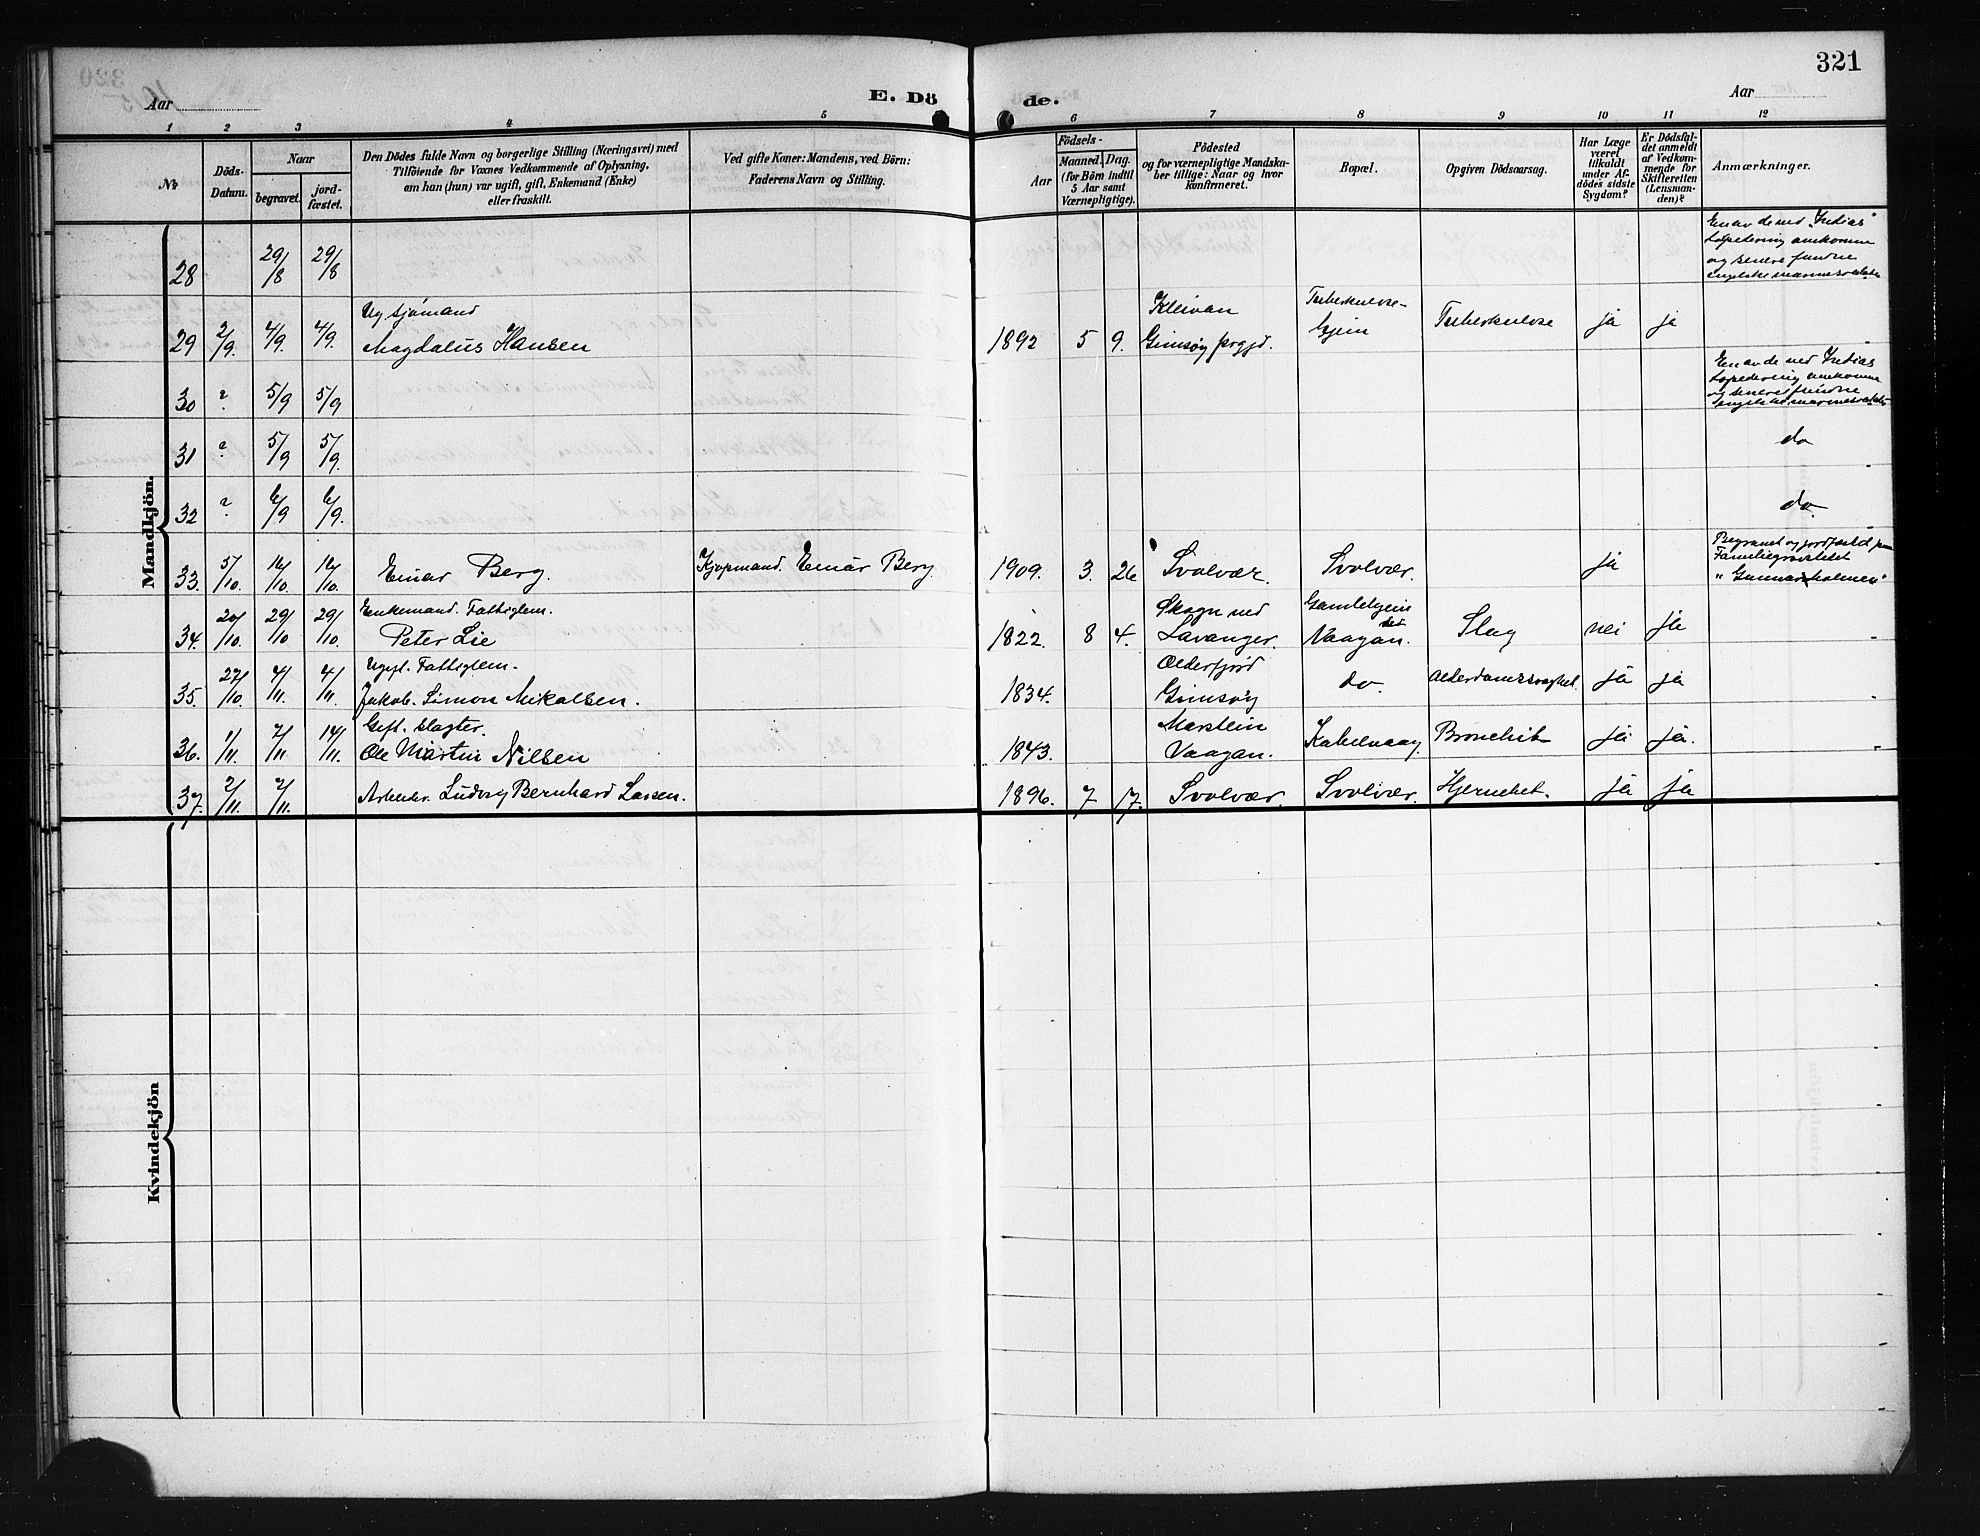 321
Aar
E. Dö
de.
Aar
1 2 3 4 5 6 7 8 9 10 11 12
No
Döds-
Datum.
Naar
begravet.
jord-
fæstet.
Den Dödes fulde Navn og borgerlige Stilling (Næringsvei) med
Tilföiende for Voxnes Vedkommende af Oplysning,
om han (hun) var ugift, gift, Enkemand (Enke)
eller fraskilt.
Ved gifte Koner: Mandens, ved Börn:
Faderens Navn og Stilling.
Födsels-
Aar
Maaned.
Dag.
(for Börn indtil
5 Aar samt
Værnepligtige).
Födested
og for værnepligtige Mandska-
ber tillige: Naar og hvor
konfirmeret.
Bopæl.
Opgiven Dödsaarsag.
Har Læge
været
tilkaldt
under Af-
dödes sidste
Sygdom?
Er Dödsfal-
det anmeldt
af Vedkom-
mende for
Skifteretten
(Lensman-
den)?
Anmærkninger.
Mandkjön.
28 29/8 29/8
En av de ved "Indias"
torpedering omkomne
og senere fundne
engelske marinesoldater
29 2/9. 4/9. 4/9.
Ug sjömand
Magdalus Hansen
1892 5 9.
Kleivan
Gimsöy prgjd.
Tuberkulose-
hjem
Tuberkulose ja ja
30 ? 5/9 5/9
En av de ved Indias
torpedering omkomne
og senere fundne
engelske marinesoldater
31 ? 5/9 5/9. do
32 ? 6/9 6/9. do.
33. 5/10. 16/10 16/10.
Einar Berg.
Kjøpmand. Einar Berg.
1909. 3. 26 Svolvær. Svolvær. ja
Begravet og jordfæstet paa
Familiegravstedet
"Gunnarholmen"
34. 20/10. 29/10 29/10.
Enkemand. Fattiglem.
Peter Lie
1822. 8 4.
Skogn ved
Levanger.
Gamlehjem
Vaagan.
Slag nei ja
35. 27/10. 4/11. 4/11.
Ugift. Fattiglem.
Jakob Simon Mikalsen.
1834.
Olderfjord
Gimsöy
do. Alderdomssvaghet. ja ja
36. 1/11. 7/11 14/11.
Gift. slagter.
Ole Martin Nilsen
1843.
Marstein
Vaagan.
Kabelvaag. Bronchit ja ja.
37. 2/11. 7/11.
Arbeider. Ludvig Bernhard Larsen.
1896. 7 17. Svolvær. Svolvær. Hjernebet. ja ja
Kvindekjön